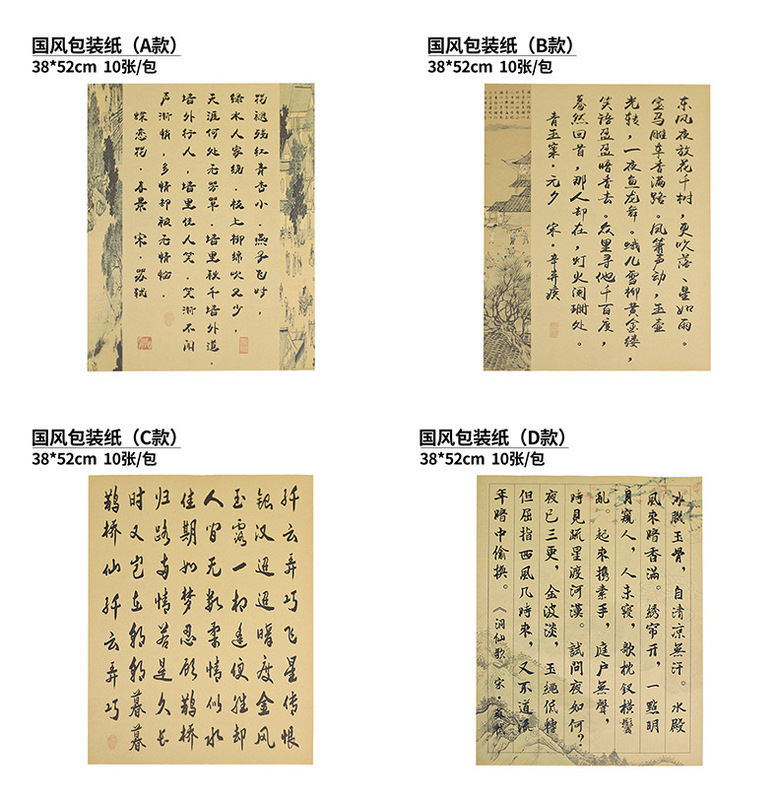 国风包装纸（A款）
38*52cm 10张/包
花褪残红青杏小。燕子飞时，
绿水人家绕。枝上柳绵吹又少，
天涯何处无芳草。墙里秋千墙外道。
墙外行人，墙里佳人笑。笑渐不闻
声渐悄，多情却被无情恼。
蝶恋花·春景 宋·苏轼
国风包装纸（B款）
38*52cm 10张/包
东风夜放花千树，更吹落、星如雨。
宝马雕车香满路。凤箫声动，玉壶
光转，一夜鱼龙舞。蛾儿雪柳黄金缕，
笑语盈盈暗香去。众里寻他千百度，
蓦然回首，那人却在，灯火阑珊处。
青玉案·元夕 宋·辛弃疾
国风包装纸（C款）
38*52cm 10张/包
纤云弄巧飞星传恨
银汉迢迢暗度金风
玉露一相逢便胜却
人间无数柔情似水
佳期如梦忍顾鹊桥
归路两情若是久长
时又岂在朝朝暮暮
鹊桥仙纤云弄巧
国风包装纸（D款）
38*52cm 10张/包
冰肌玉骨，自清凉無汗。水殿
風來暗香滿。绣帘开，一點明
月窺人，人未寝，欹枕钗横鬓
亂。起來携素手，庭户無聲，
時見疏星渡河漢。試問夜如何？
夜已三更，金波淡，玉绳低轉
但屈指西風几時來，又不道流
年暗中偷换。《洞仙歌》宋·苏轼